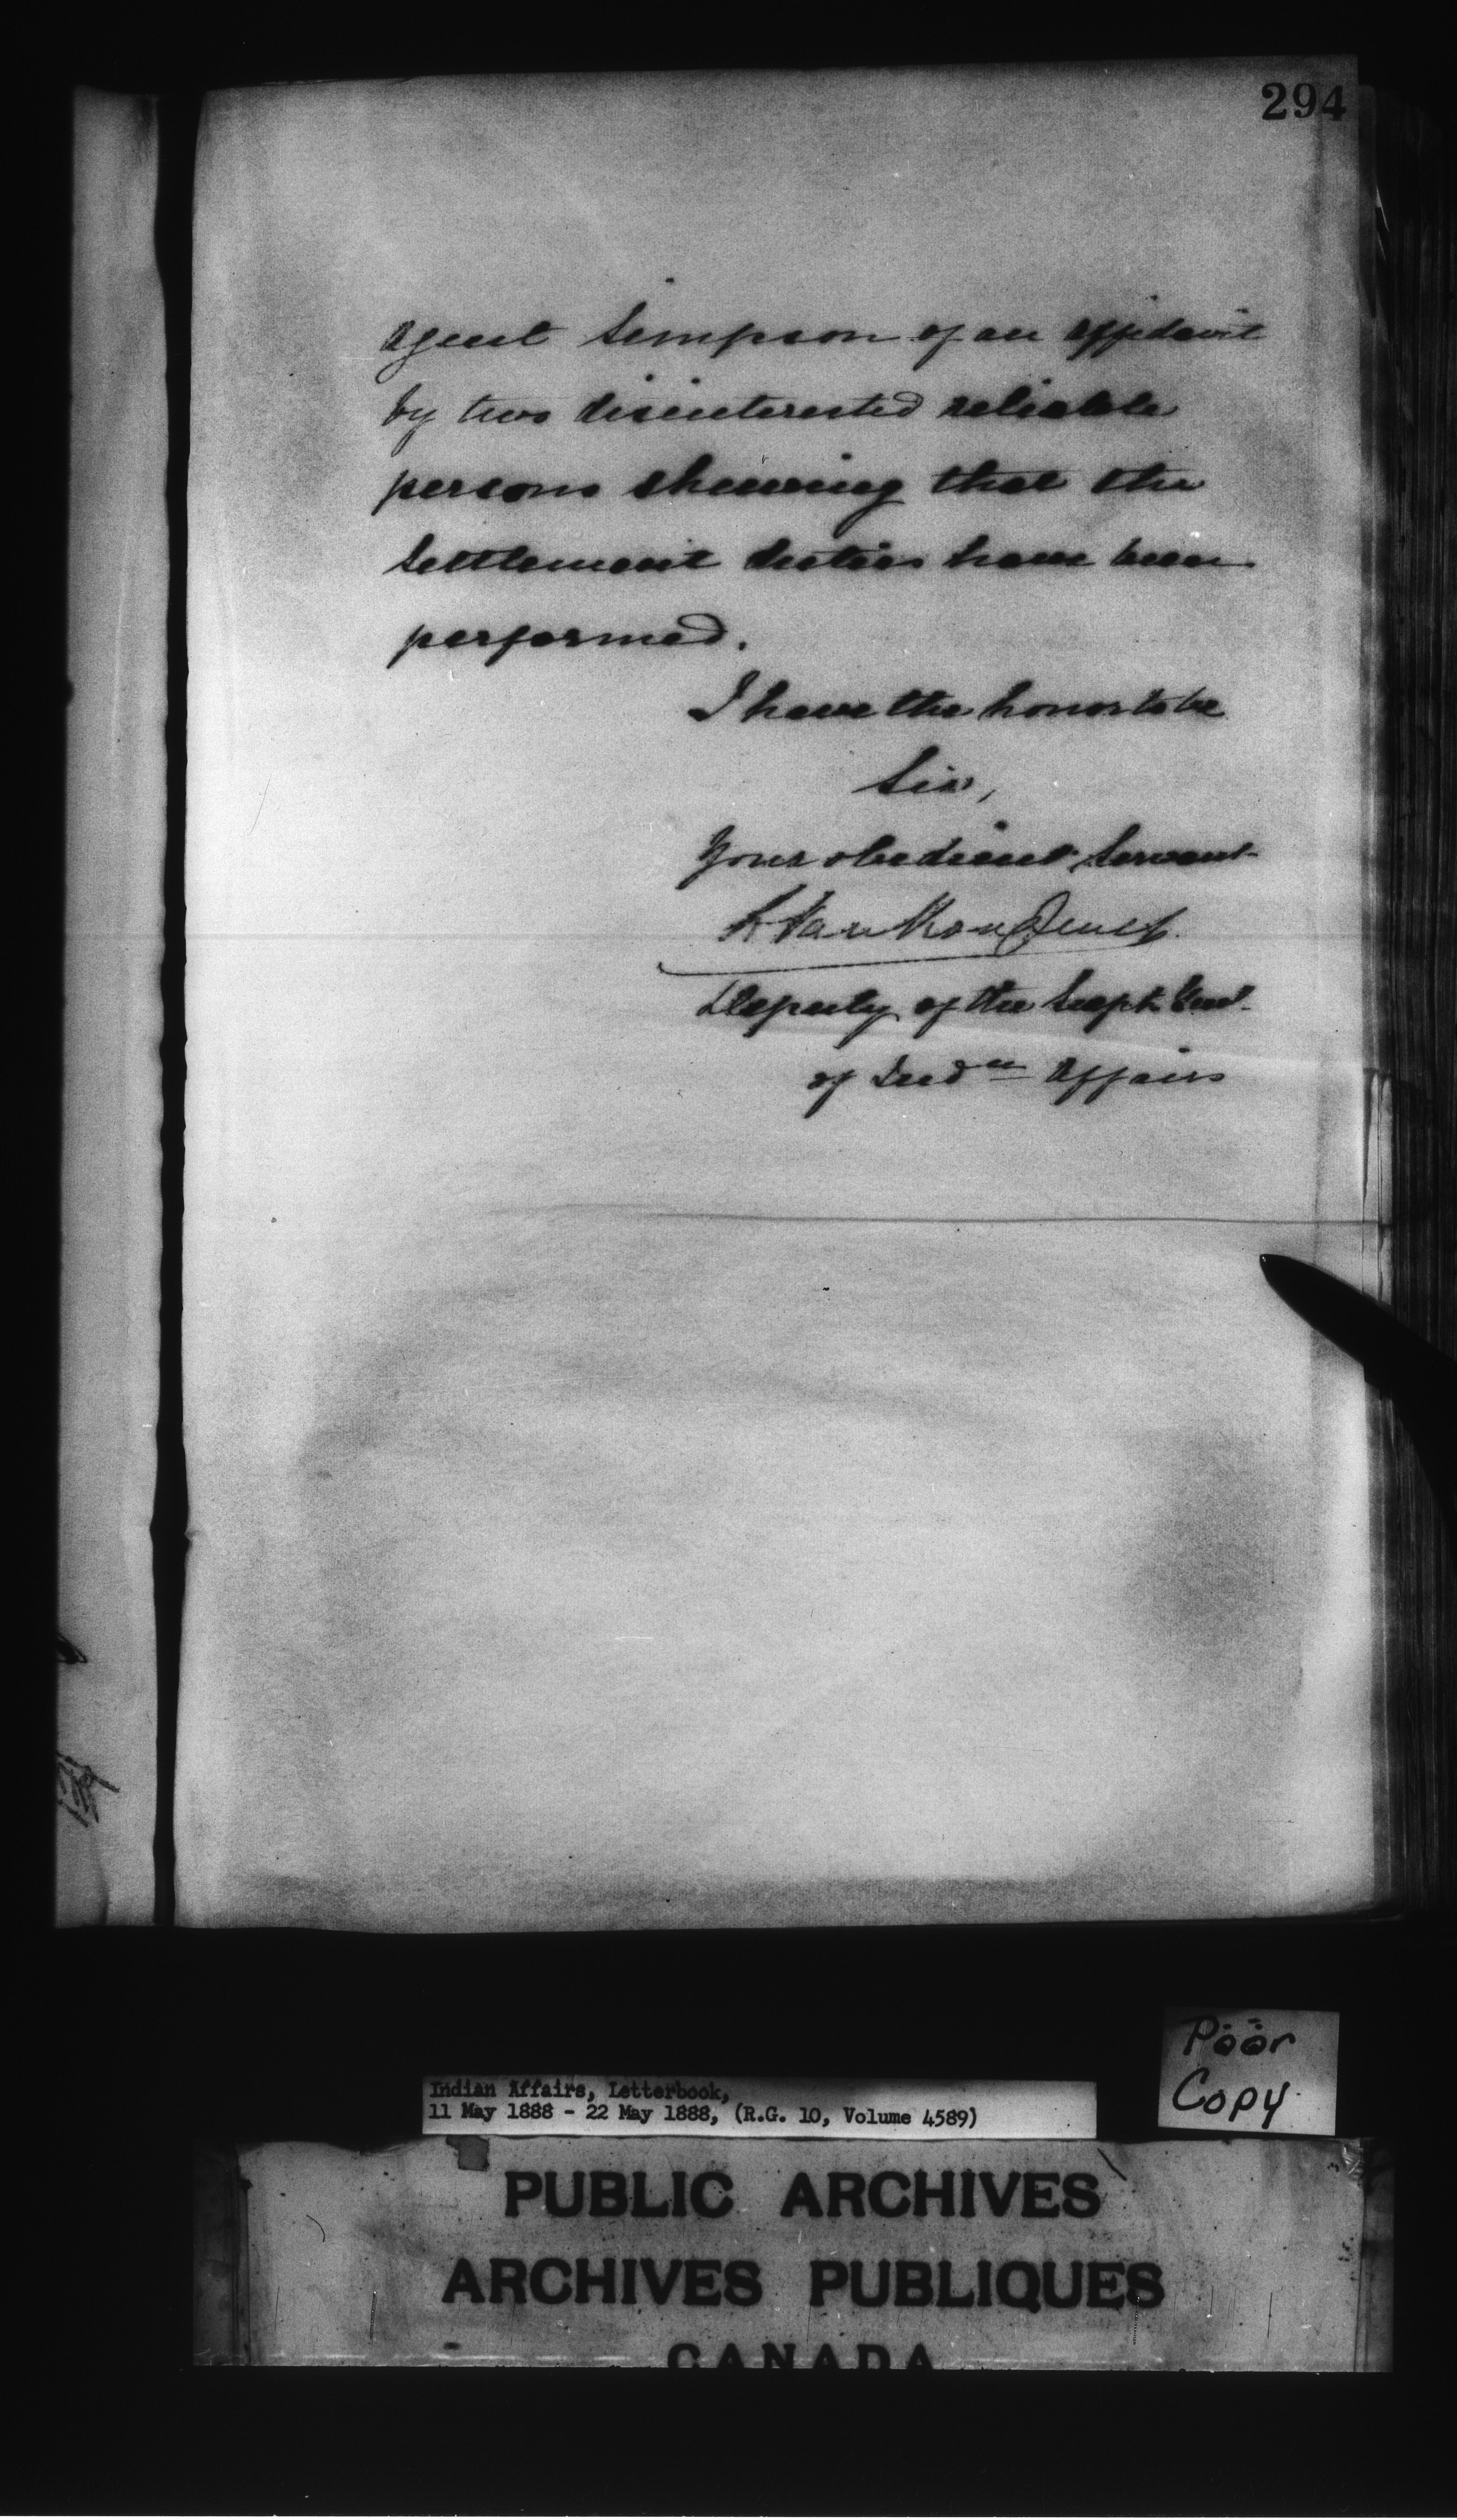 294
Agent Simpson of an affidavit
by two disinterested reliable
persons shewing that the
settlement duties have been
performed.
I have the honor to be
Sir,
Your obedient Servant
L. VanKoughnet
Deputy of the Supt. Genl.
of Indn Affairs
Poor
Copy
Indian Affairs, Letterbook,
11 May 1888 - 22 May 1888, (R.G. 10, Volume 4589)
PUBLIC ARCHIVES
ARCHIVES PUBLIQUES
CANADA